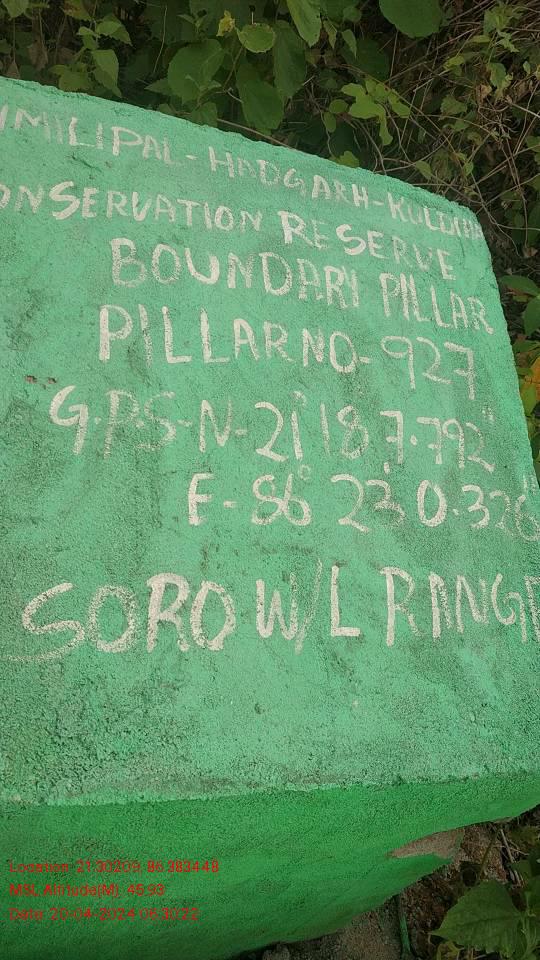 IMILIPAL-HADGARH-KULDIHA
ONSERVATION RESERVE
BOUNDARY PILLAR
PILLAR NO-927
G.P.S-N-21° 18' 7.792"
E-86° 23' 0.326
SORO W/L RANGE
Location: 21.30209, 86.383448
MSL Altitude(M): 45.93
Date: 20-04-2024 06:30:22